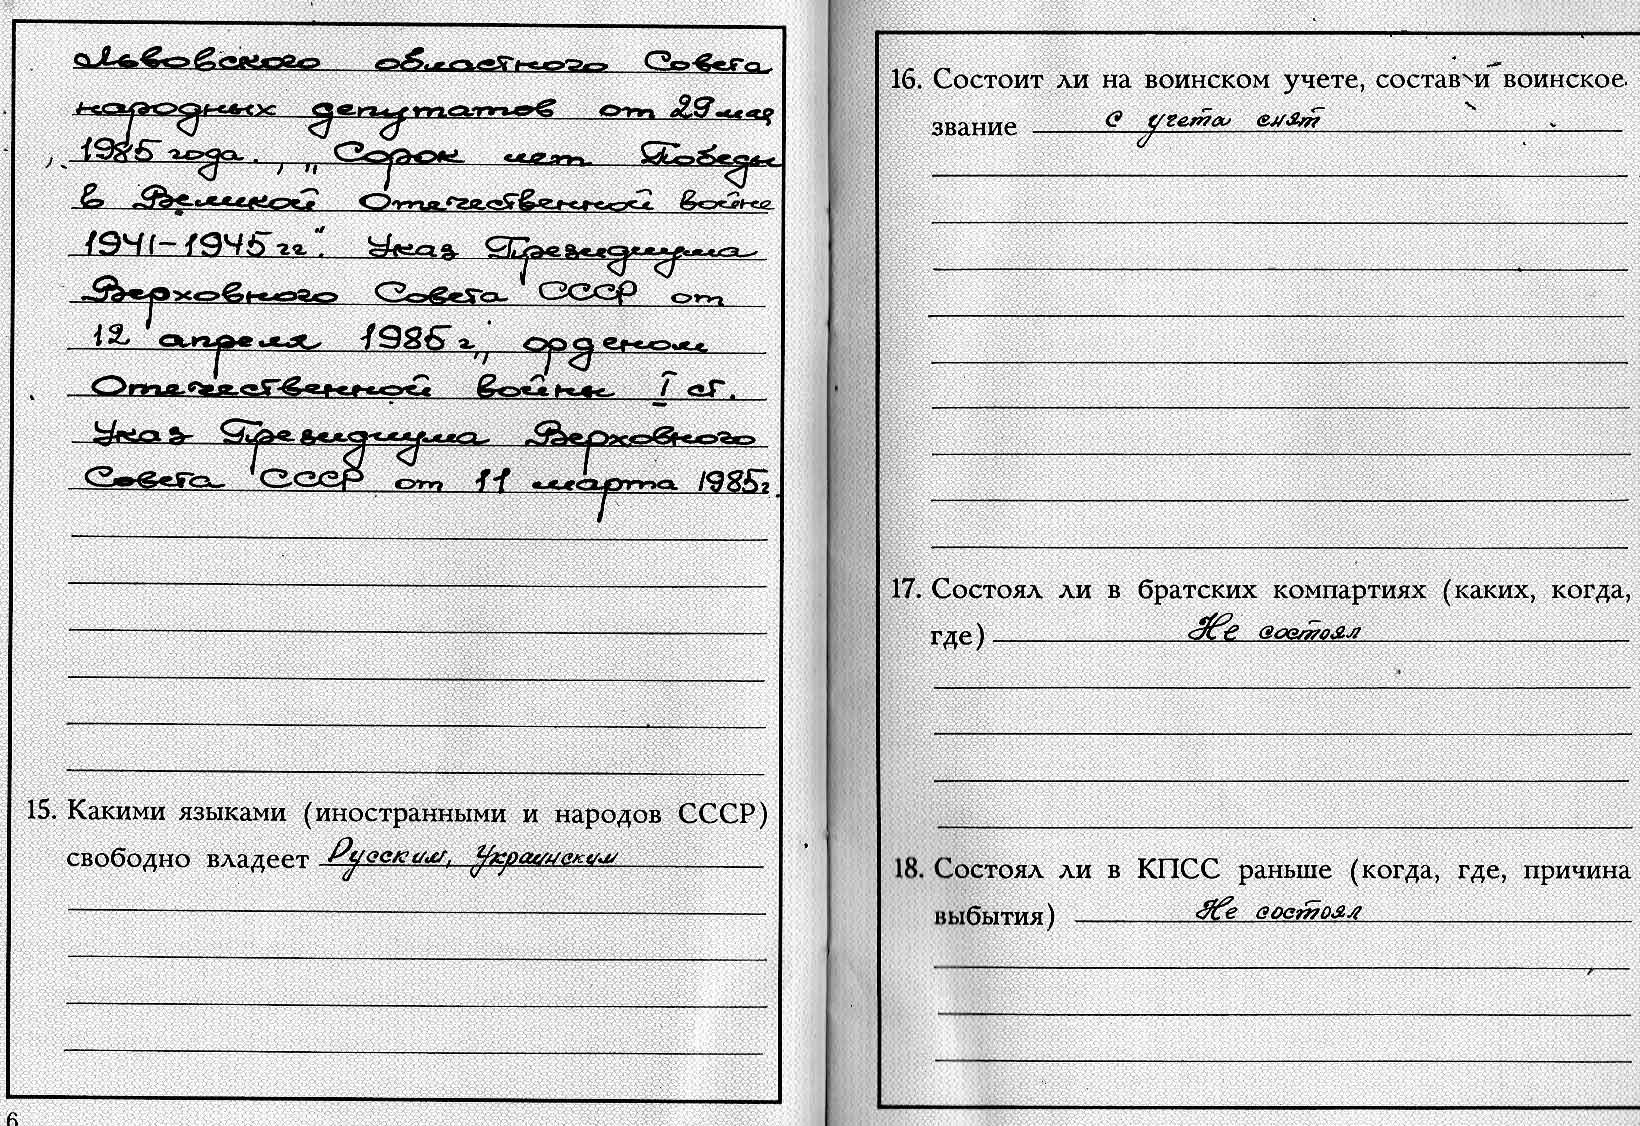 Львовского областного Совета
народных депутатов от 29 мая
1985 года., „Сорок лет Победы
в Великой Отечественной войне
1941-1945 гг". Указ Президиума
Верховного Совета СССР от
12 апреля 1985 г., орденом
Отечественной войны I ст.
Указ Президиума Верховного
Совета СССР от 11 марта 1985г.
15. Какими языками (иностранными и народов СССР)
свободно владеет Русским, Украинским
6
16. Состоит ли на воинском учете, состав и воинское
звание с учета снят
17. Состоял ли в братских компартиях (каких, когда,
где) Не состоял
18. Состоял ли в КПСС раньше (когда, где, причина
выбытия) Не состоял